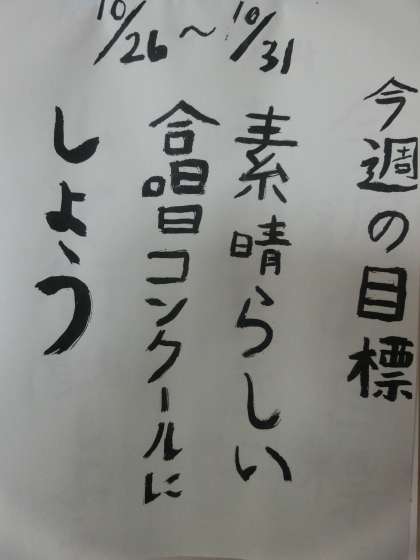 今週の目標
10/26〜10/31
素晴らしい
合唱コンクールに
しょう